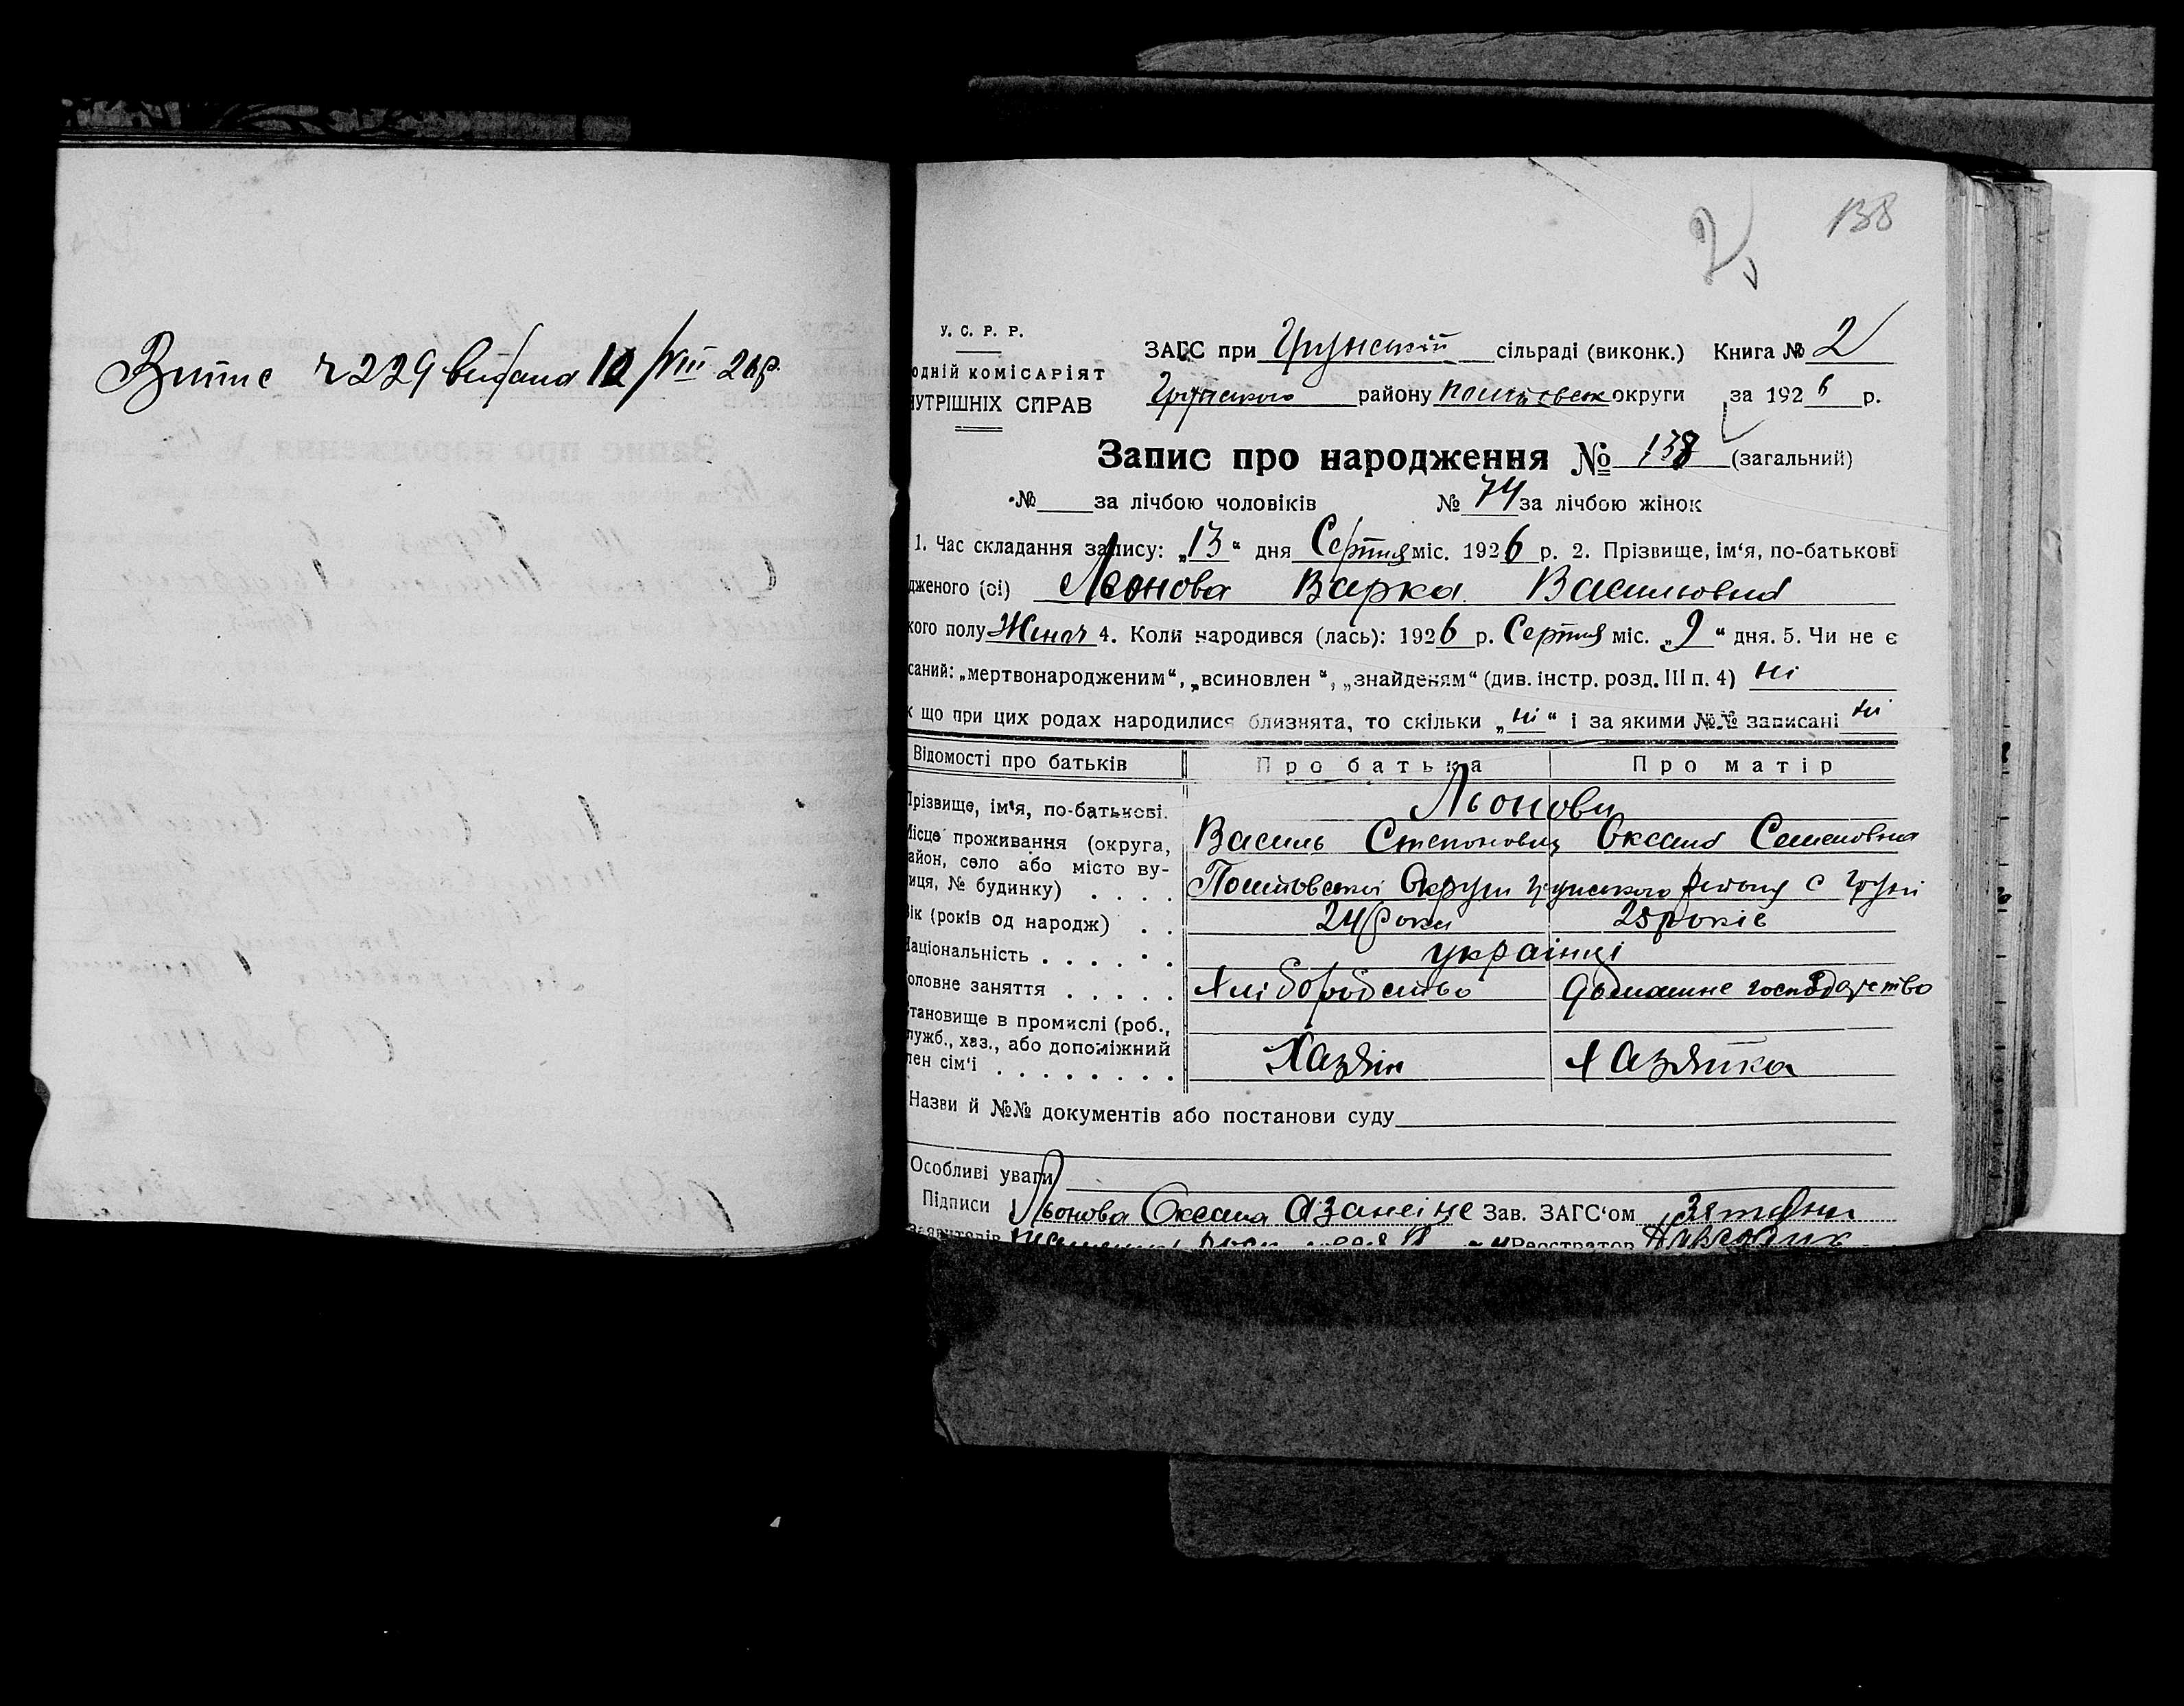 Витис ч 229 видана 12/VIII 26р.
2
138
У. С. Р. Р.
ОДНІЙ КОМІСАРІЯТ
НУТРІШНІХ СПРАВ
ЗАГС при Грунській сільраді (виконк.) Книга № 2
Грунського району Полтавськ округи за 1926 р.
Запис про народження № 138 (загальний)
№ за лічбою чоловіків № 74 за лічбою жінок
1. Час складання запису: „13“ дня Серпня міс. 1926 р. 2. Прізвище, ім‘я, по-батькові
дженого (ої) Льонова Варка Василовна
кого полу Жіноч 4. Коли народився (лась): 1926 р. Серпня міс. „9“ дня. 5. Чи не є
саний: „мертвонародженим“, „всиновлен “, „знайденям“ (див. інстр. розд. III п. 4) ні
к що при цих родах народилися близнята, то скільки „ні“ і за якими №№ записані ні
Відомості про батьків Про батька Про матір
Прізвище, ім‘я, по-батькові. Льонови
Василь Степонович Оксана Семеновна
Місце проживання (округа,
айон, село або місто ву-
иця, № будинку) . . . . Полтовської Округи Грунського району с Груні
Вік (років од народж) . . 24 роки 25 років
Національність . . . . . . україниці
оловне заняття . . . . . Хліборобство Домашне господарство
тановище в промислі (роб.,
лужб., хаз., або допоміжний
лен сім‘ї . . . . . . . . Хазяін Хазяйка
Назви й №№ документів або постанови суду
Особливі уваги
Підписи Льонова Оксана Зав. ЗАГС‘ом
заявителів Реєстратор